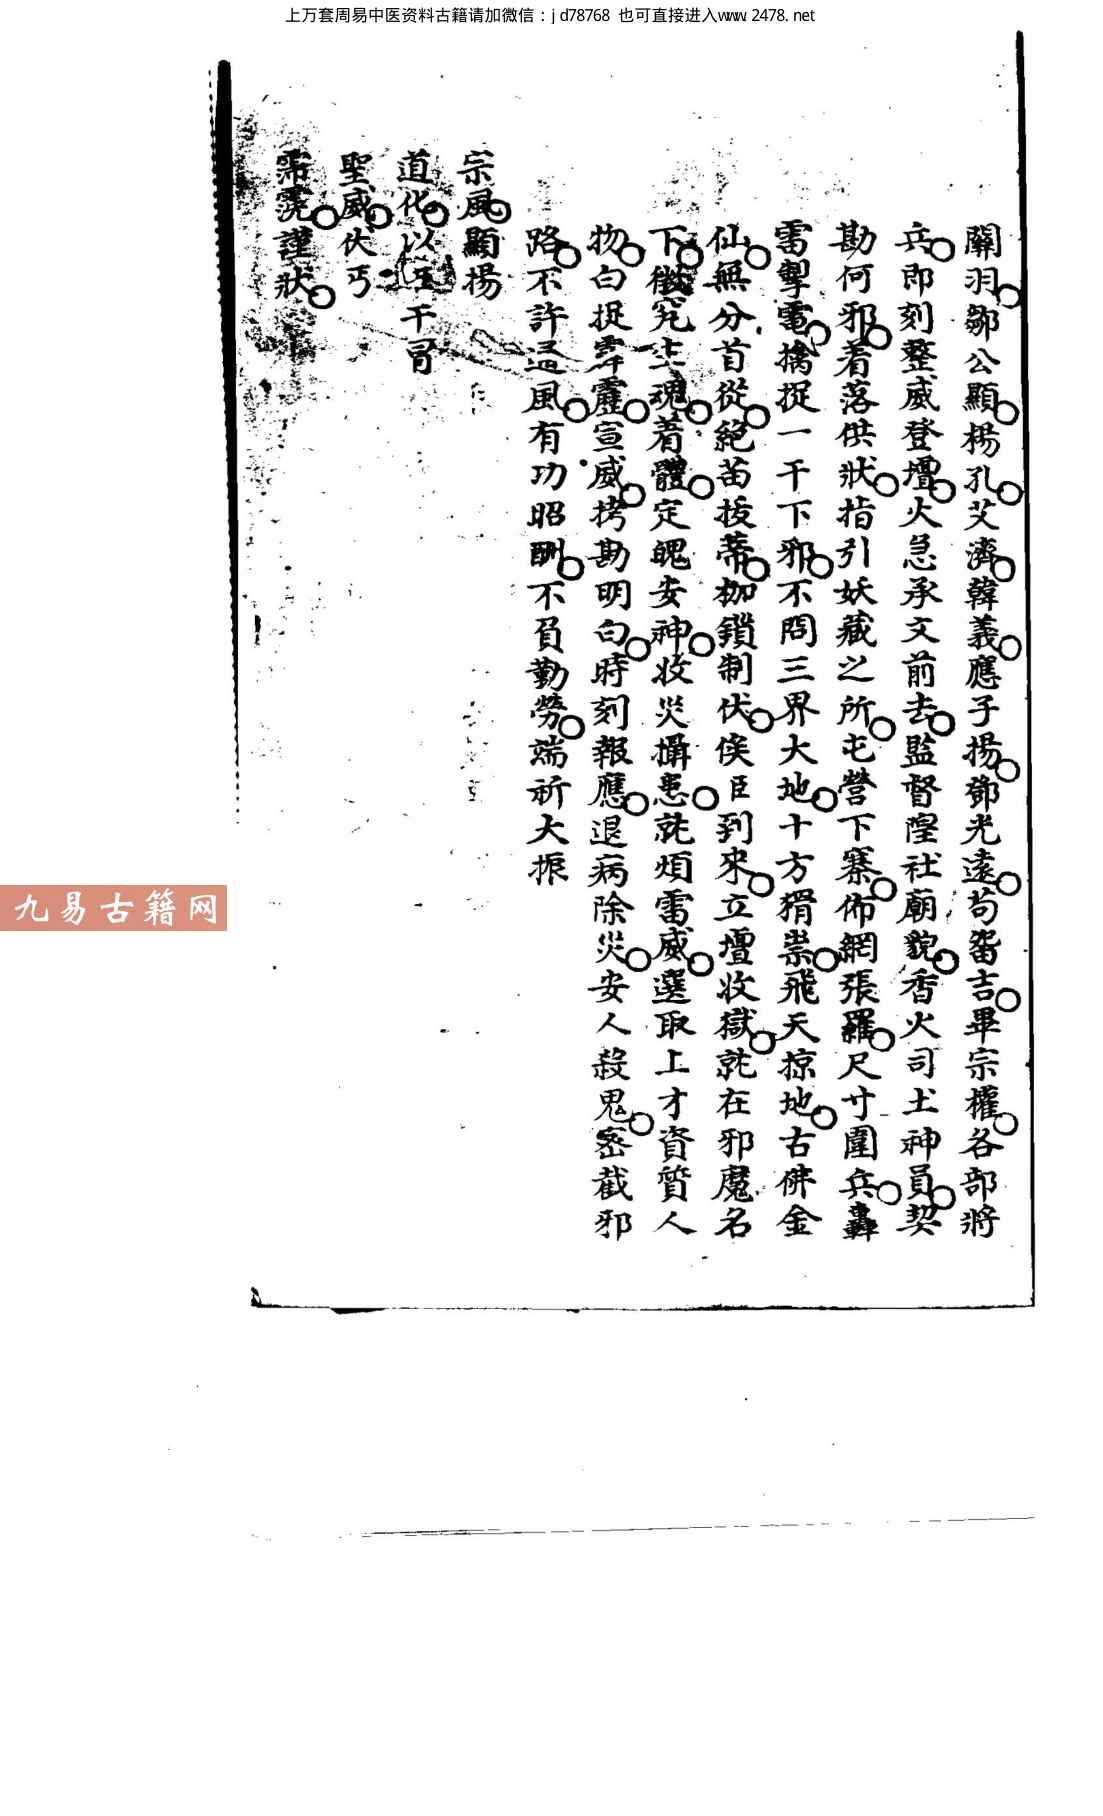 上万套周易中医资料古籍请加微信：jd78768 也可直接进入www.2478.net
關羽○鄒公顯○楊孔○艾濟○韓義○應子揚○鄧光遠○苟畱吉○畢宗權○各部將
兵○即刻整威登壇○火急承文前去○監督隍社廟貌○香火司土神員○契
勘何邪○着落供狀○指引妖藏之所○屯營下寨○佈網張羅○尺寸圍兵○轟
雷掣電○擒捉一干下邪○不問三界大地○十方猾祟○飛天掠地○古佛金
仙○無分首從○絕苗拔蒂○枷鎖制伏○俟臣到來○立壇收獄○就在邪魔名
下○徵究生魂○着體○定魄安神○收災攝患○就煩雷威○選取上才資質人
物○白捉霹靂○宣威○拷勘明白○時刻報應○退病除災○安人殺鬼○密截邪
路○不許逞風○有功昭酬○不負勤勞○端祈大振
宗風○顯揚
道化○以干冒
聖威○伏丐
霈霓○謹狀○
九易古籍网